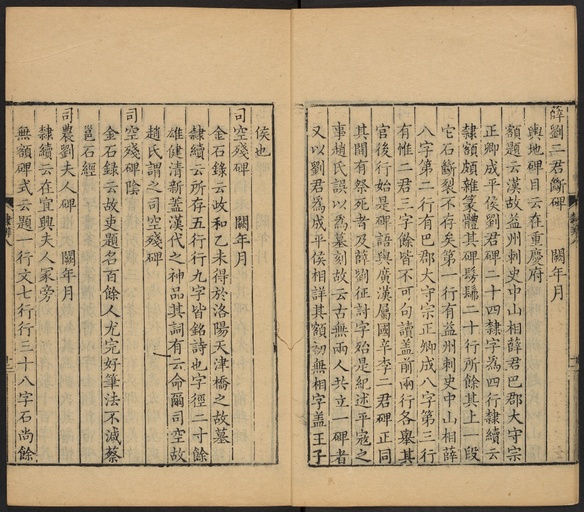 薛劉二君斷碑　闕年月
輿地碑目云在重慶府
額題云漢故益州刺史中山相薛君巴郡太守宗
正卿成平侯劉君碑二十四隸字為四行隸續云
隸額頗雜篆體其碑髣髴二十行所餘其上一段
它石斷裂不存矣第一行有益州刺史中山相薛
八字第二行有巴郡大守宗正卿成八字第三行
有惟二君三字餘皆不可句讀蓋前兩行各舉其
官後行始是碑語與廣漢屬國辛李二君碑正同
其間有祭死者及薛劉征討字殆是紀述平寇之
事趙氏誤以為墓刻故云古無兩人共立一碑者
又以劉君為成平侯相詳其額初無相字蓋王子
侯也
司空殘碑　闕年月
金石錄云政和乙未得於洛陽天津橋之故墓
隸續云所存五行行九字皆銘詩也字徑二寸餘
雄健清新蓋漢代之神品其詞有云命爾司空故
趙氏謂之司空殘碑
司空殘碑陰
金石錄云故吏題名百餘人尤完好筆法不減蔡
邕石經
司農劉夫人碑　闕年月
隸續云在宜興夫人冢旁
無額碑式云題一行文七行行三十八字石尚餘